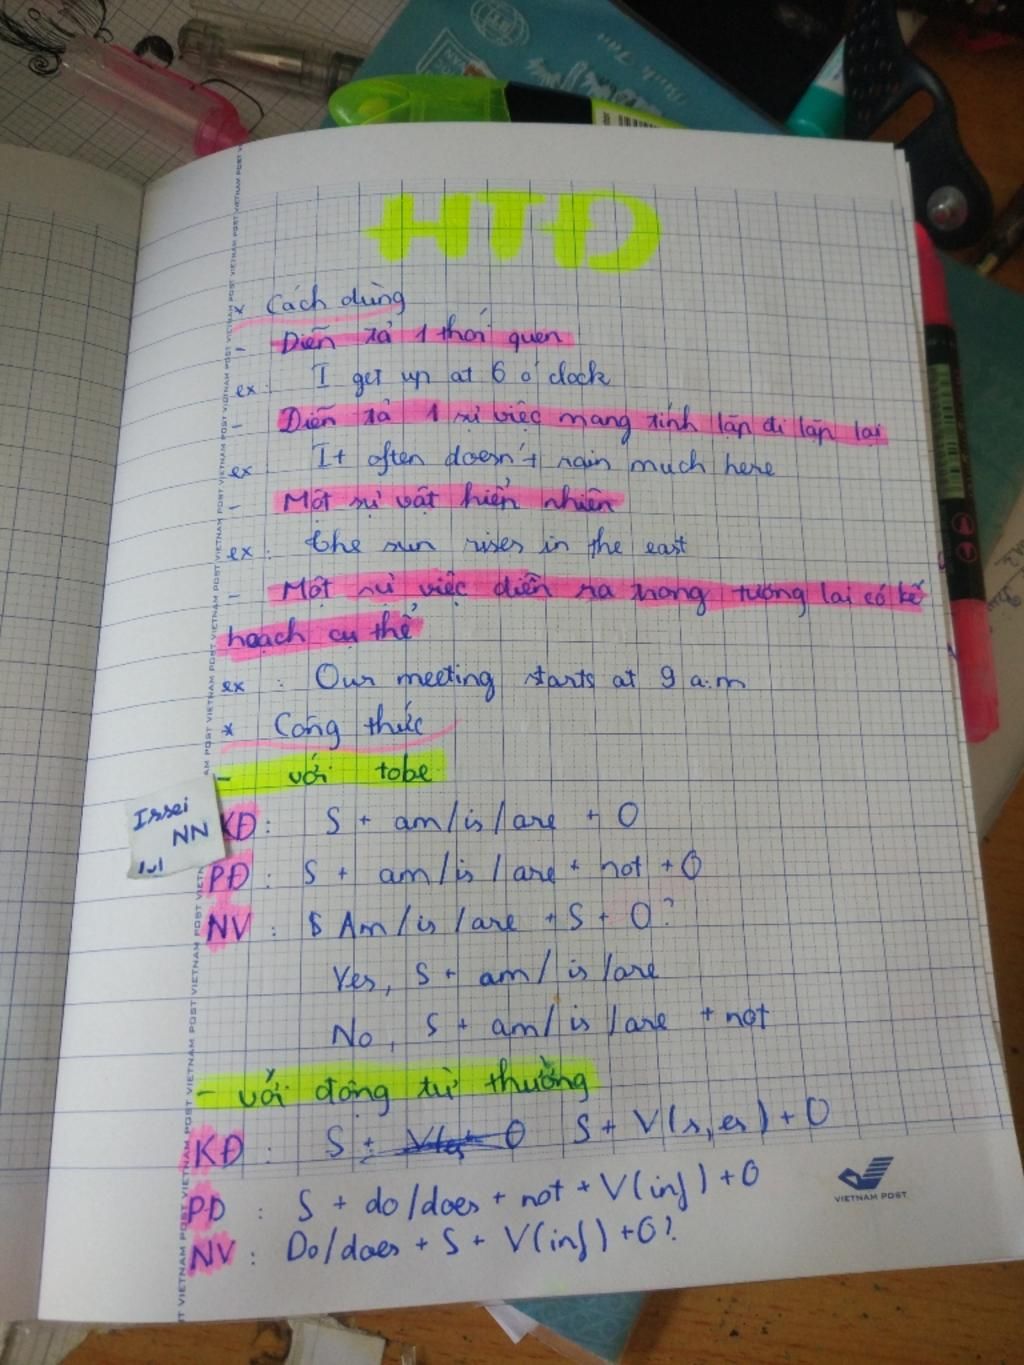 HTĐ
* Cách dùng
- Diễn tả 1 thói quen
ex: I get up at 6 o'clock
- Diễn tả 1 sự việc mang tính lặp đi lặp lại
ex It often doesn't rain much here
- Một sự vật hiển nhiên
ex: the sun rises in the east
- Một sự việc diễn ra trong tương lai có kế
hoạch cụ thể
ex: Our meeting starts at 9 a.m
* Công thức
- với tobe
Issei
NN
KĐ: S + am/is/are + O
PĐ: S + am/is/are + not + O
NV: Am/is/are + S + O?
Yes, S + am/is/are
No, S + am/is/are + not
- với động từ thường
KĐ: S + V(s,es) + O
PĐ: S + do/does + not + V(inf) + O
NV: Do/does + S + V(inf) + O?
VIETNAM POST